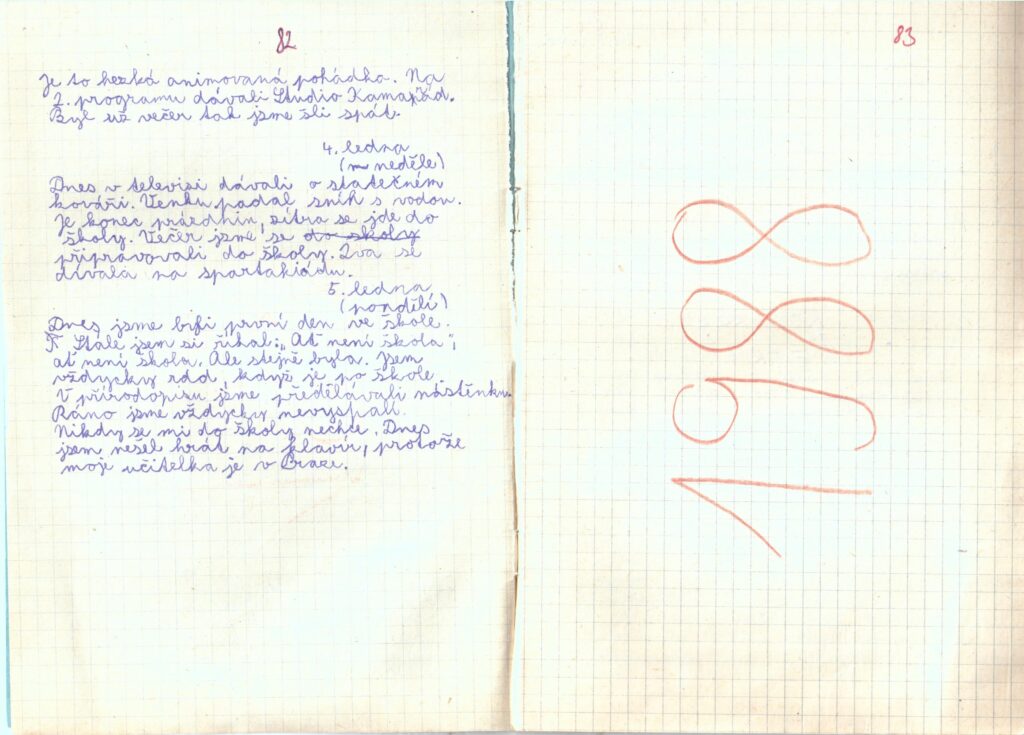 82
je to hezká animovaná pohádka. Na
2. programu dávali Studio Kamarád.
Byl už večer tak jsme šli spát.
4. ledna
(neděle)
Dnes v televisi dávali o statečném
kováři. Venku padal sníh s vodou.
Je konec prázdnin, zítra se jde do
školy. Večer jsme se do školy
připravovali do školy. Iva se
dívala na spartakiádu.
5. ledna
(pondělí)
Dnes jsme byli první den ve škole.
Stále jsem si říkal: „Ať není škola",
ať není škola. Ale stejně byla. Jsem
vždycky rád, když je po škole.
V přírodopisu jsme předělávali nástěnku.
Ráno jsme vždycky nevyspalí.
Nikdy se mi do školy nechce. Dnes
jsem nešel hrát na klavír, protože
moje učitelka je v Praze.
83
1988